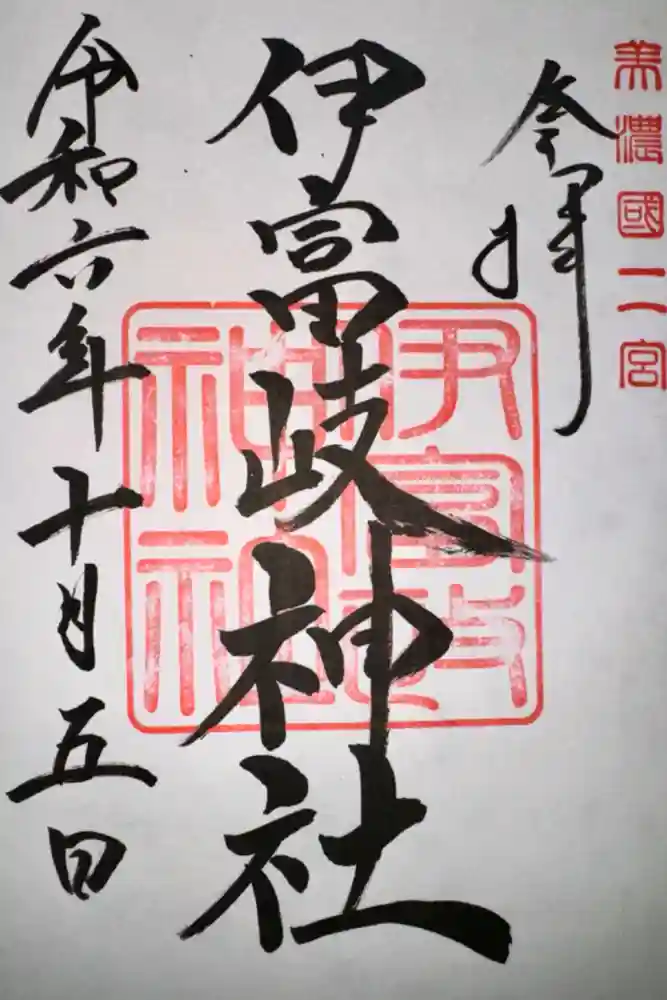 美濃國二宮
奉拝
伊富岐神社
伊富岐
神社
令和六年十月五日